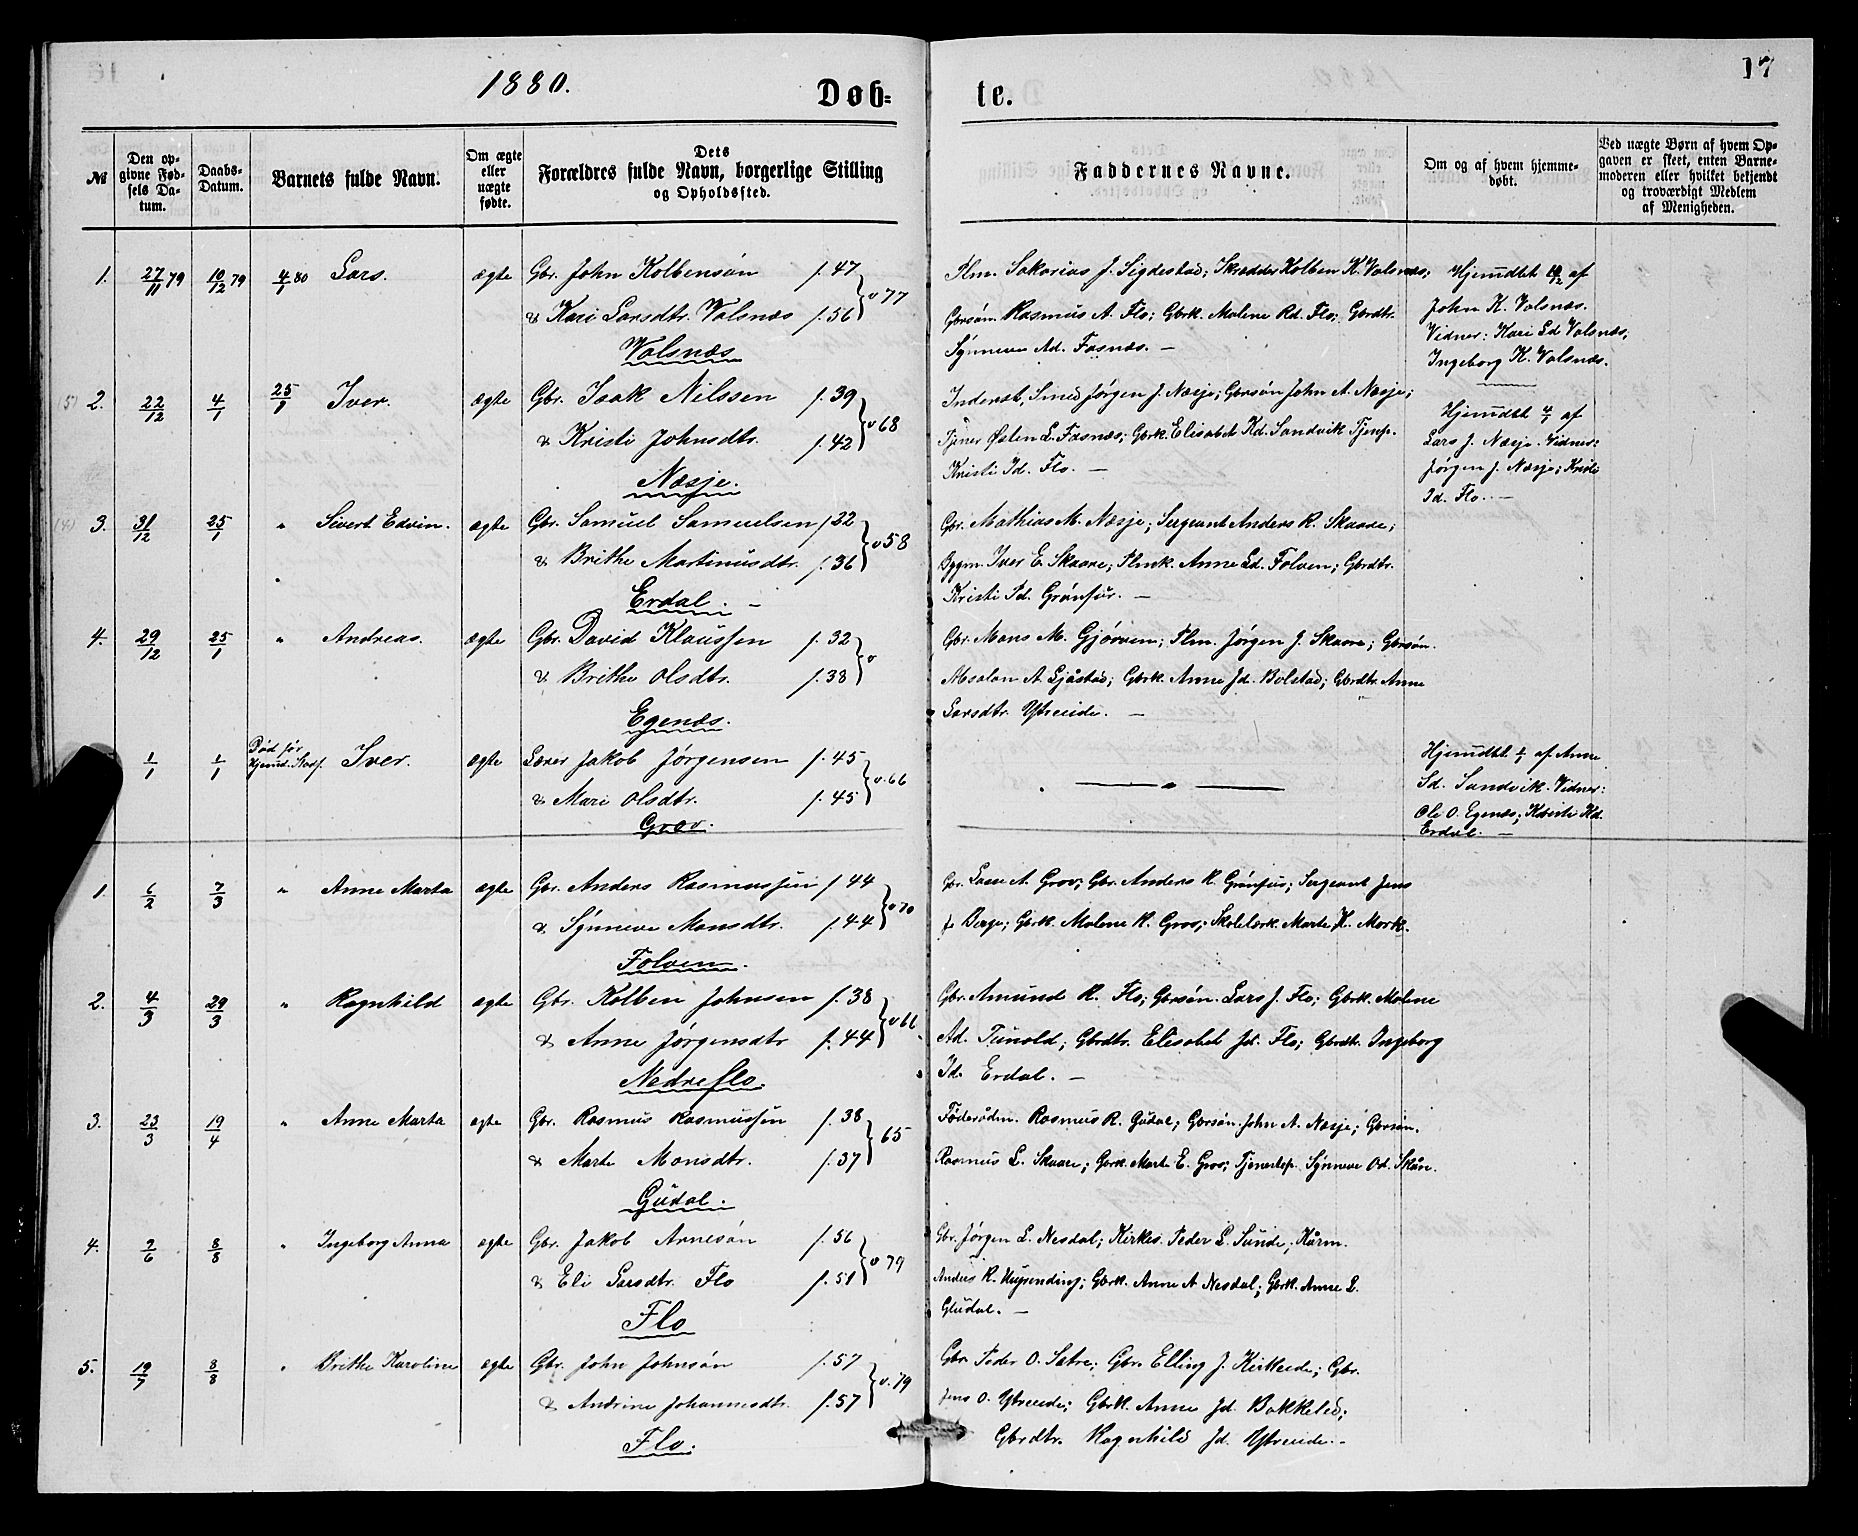 1880.
Døb=
te.
17
№
Den op-
givne Fød-
sels Da-
tum.
Daabs-
Datum.
Barnets fulde Navn.
Om ægte
eller
uægte
fødte.
Dets
Forældres fulde Navn, borgerlige Stilling
og Opholdssted.
Faddernes Navne.
Om og af hvem hjemme-
døbt.
Ved uægte Børn af hvem Op-
gaven er skeet, enten Barne-
moderen eller hvilket bekjendt
og troværdigt Medlem
af Menigheden.
1. 27/11 79 10/12 79 4/1 80 Lars. ægte Gbr. John Kolbensøn f. 47
& Kari Larsdtr. Valsnæs f. 56 } v 77
Valsnæs
Plm. Sakarias J. Sigdestad; Skrædder Kolben K. Valsnæs;
Gbrsøn. Rasmus A. Flo; Gbrk. Malene Rd. Flo; Gbrdtr.
Synneve Ad. Fasnæs. —
Hjemdbt af
John K. Valsnæs.
Vidner: Kari Ld Valsnæs,
Ingeborg K. Valsnæs.
(5) 2. 22/12 4/1 25/1 Iver. ægte Gbr. Isak Nilssen f. 39
& Kristi Johnsdtr. f. 42 } v 68
Næsje.
Inderst, Smed Jørgen J. Næsje; Gbrsøn John A. Næsje;
Tjener Østen L. Fasnæs; Gbrk. Elisabet Kd. Sandvik Tjenp.
Kristi Id. Flo. —
Hjemdbt 4/1 af
Lars J. Næsje. Vidner:
Jørgen J. Næsje; Kristi
Id. Flo. —
(4) 3. 31/12 25/1 " Sivert Edvin. ægte Gbr. Samuel Samuelsen f 22
& Brithe Martinusdtr. f. 36 } v 58
Erdal. —
Gbr. Mathias M. Næsje; Sergeant Anders R. Skaare;
Bygm. Iver E. Skaare; Plmk. Anne Ld. Folven; Gbrdtr.
Kristi Pd. Grønfur. —
4. 29/12 25/1 " Andreas. ægte Gbr. David Klaussen f. 32
& Brithe Olsdtr. f. 38 } v
Egenæs.
Gbr. Mons M. Gjørven; Plm. Jørgen J. Skaare; Gbrsøn.
Absalon A Ljåstad; Gbrk. Anne Jd. Bolstad; Gbrdtr Anne
Larsdtr. Ytreeide. —
1/1 1/1 Død før
Hjemd. Stadf. Iver. ægte Lærer Jakob Jørgensen f. 45
& Mari Olsdtr. f. 45 } v. 66
Grov.
Hjemdbt 1/1 af Anne
Sd. Sandvik. Vidner:
Ole O. Egenæs; Kristi Kd.
Erdal. —
1. 6/2 7/3 " Anne Marta ægte Gbr. Anders Rasmussen f 44
& Synneve Monsdtr. f. 44 } v 70
Folven.
Gbr. Lasse A. Grov; Gbr. Anders R. Grønfur; Sergeant Jens
J. Berge; Gbrk. Malene K. Grov; Skolelærk. Marte K. Mork.
2. 4/3 29/3 " Ragnhild ægte Gbr. Kolben Johnsen f. 38
& Anne Jørgensdtr f. 44 } v 66
Nedreflo.
Gbr. Amund R. Flo; Gbrsøn. Lars J. Flo; Gbrk. Malene
Ad. Tunold; Gbrdtr. Elisabet Jd. Flo; Gbrdtr. Ingeborg
Id. Erdal. —
3. 23/3 19/4 " Anne Marta ægte Gbr. Rasmus Rasmussen f. 38
& Marte Monsdtr. f. 37 } 65
Gudal.
Føderådm. Rasmus R. Gudal; Gbrsøn. John A. Næsje; Gbrsøn.
Rasmus L. Skaare; Gbrk. Marte E. Grov; Tjenestep. Synneve Od. Skåre.
4. 9/6 8/8 " Ingeborg Anna ægte Gbr. Jakob Arnesøn f. 56
& Eli Larsdtr. Flo f. 51 } v 79
Flo
Gbr. Jørgen L. Nesdal; Kirkes. Peder L. Sunde; Kårm.
Anders R. ; Gbrk. Anne A Nesdal; Gbrk. Anne L.
Gudal. —
5. 19/7 8/8 " Brithe Karoline ægte Gbr. John Johnsøn f. 57
& Andrine Johannesdtr. f. 57 } v. 79
Flo.
Gbr. Peder O. Sætre; Gbr. Elling J. Kirkeide; Gbr.
Jens O. Ytreeide; Gbrk. Anne Jd. Bakkelid;
Gbrdtr. Ragnhild Jd. Ytreeide. —